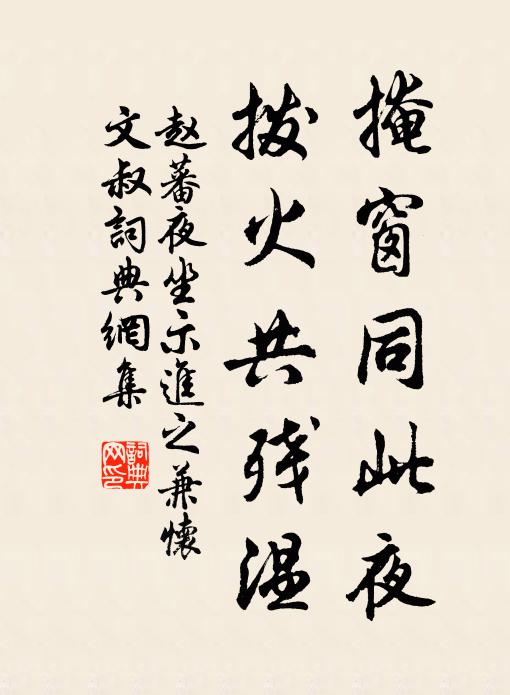 掩窗同此夜
拨火共残温
赵蕃夜坐示進之兼懷
文叔詞典網集
詞典
网印